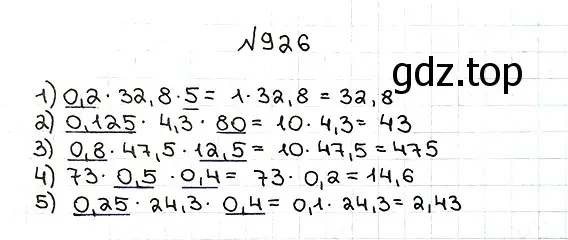 №926
gdz.top
1) 0,2 · 32,8 · 5 = 1 · 32,8 = 32,8
2) 0,125 · 4,3 · 80 = 10 · 4,3 = 43
3) 0,8 · 47,5 · 12,5 = 10 · 47,5 = 475
4) 73 · 0,5 · 0,4 = 73 · 0,2 = 14,6
5) 0,25 · 24,3 · 0,4 = 0,1 · 24,3 = 2,43